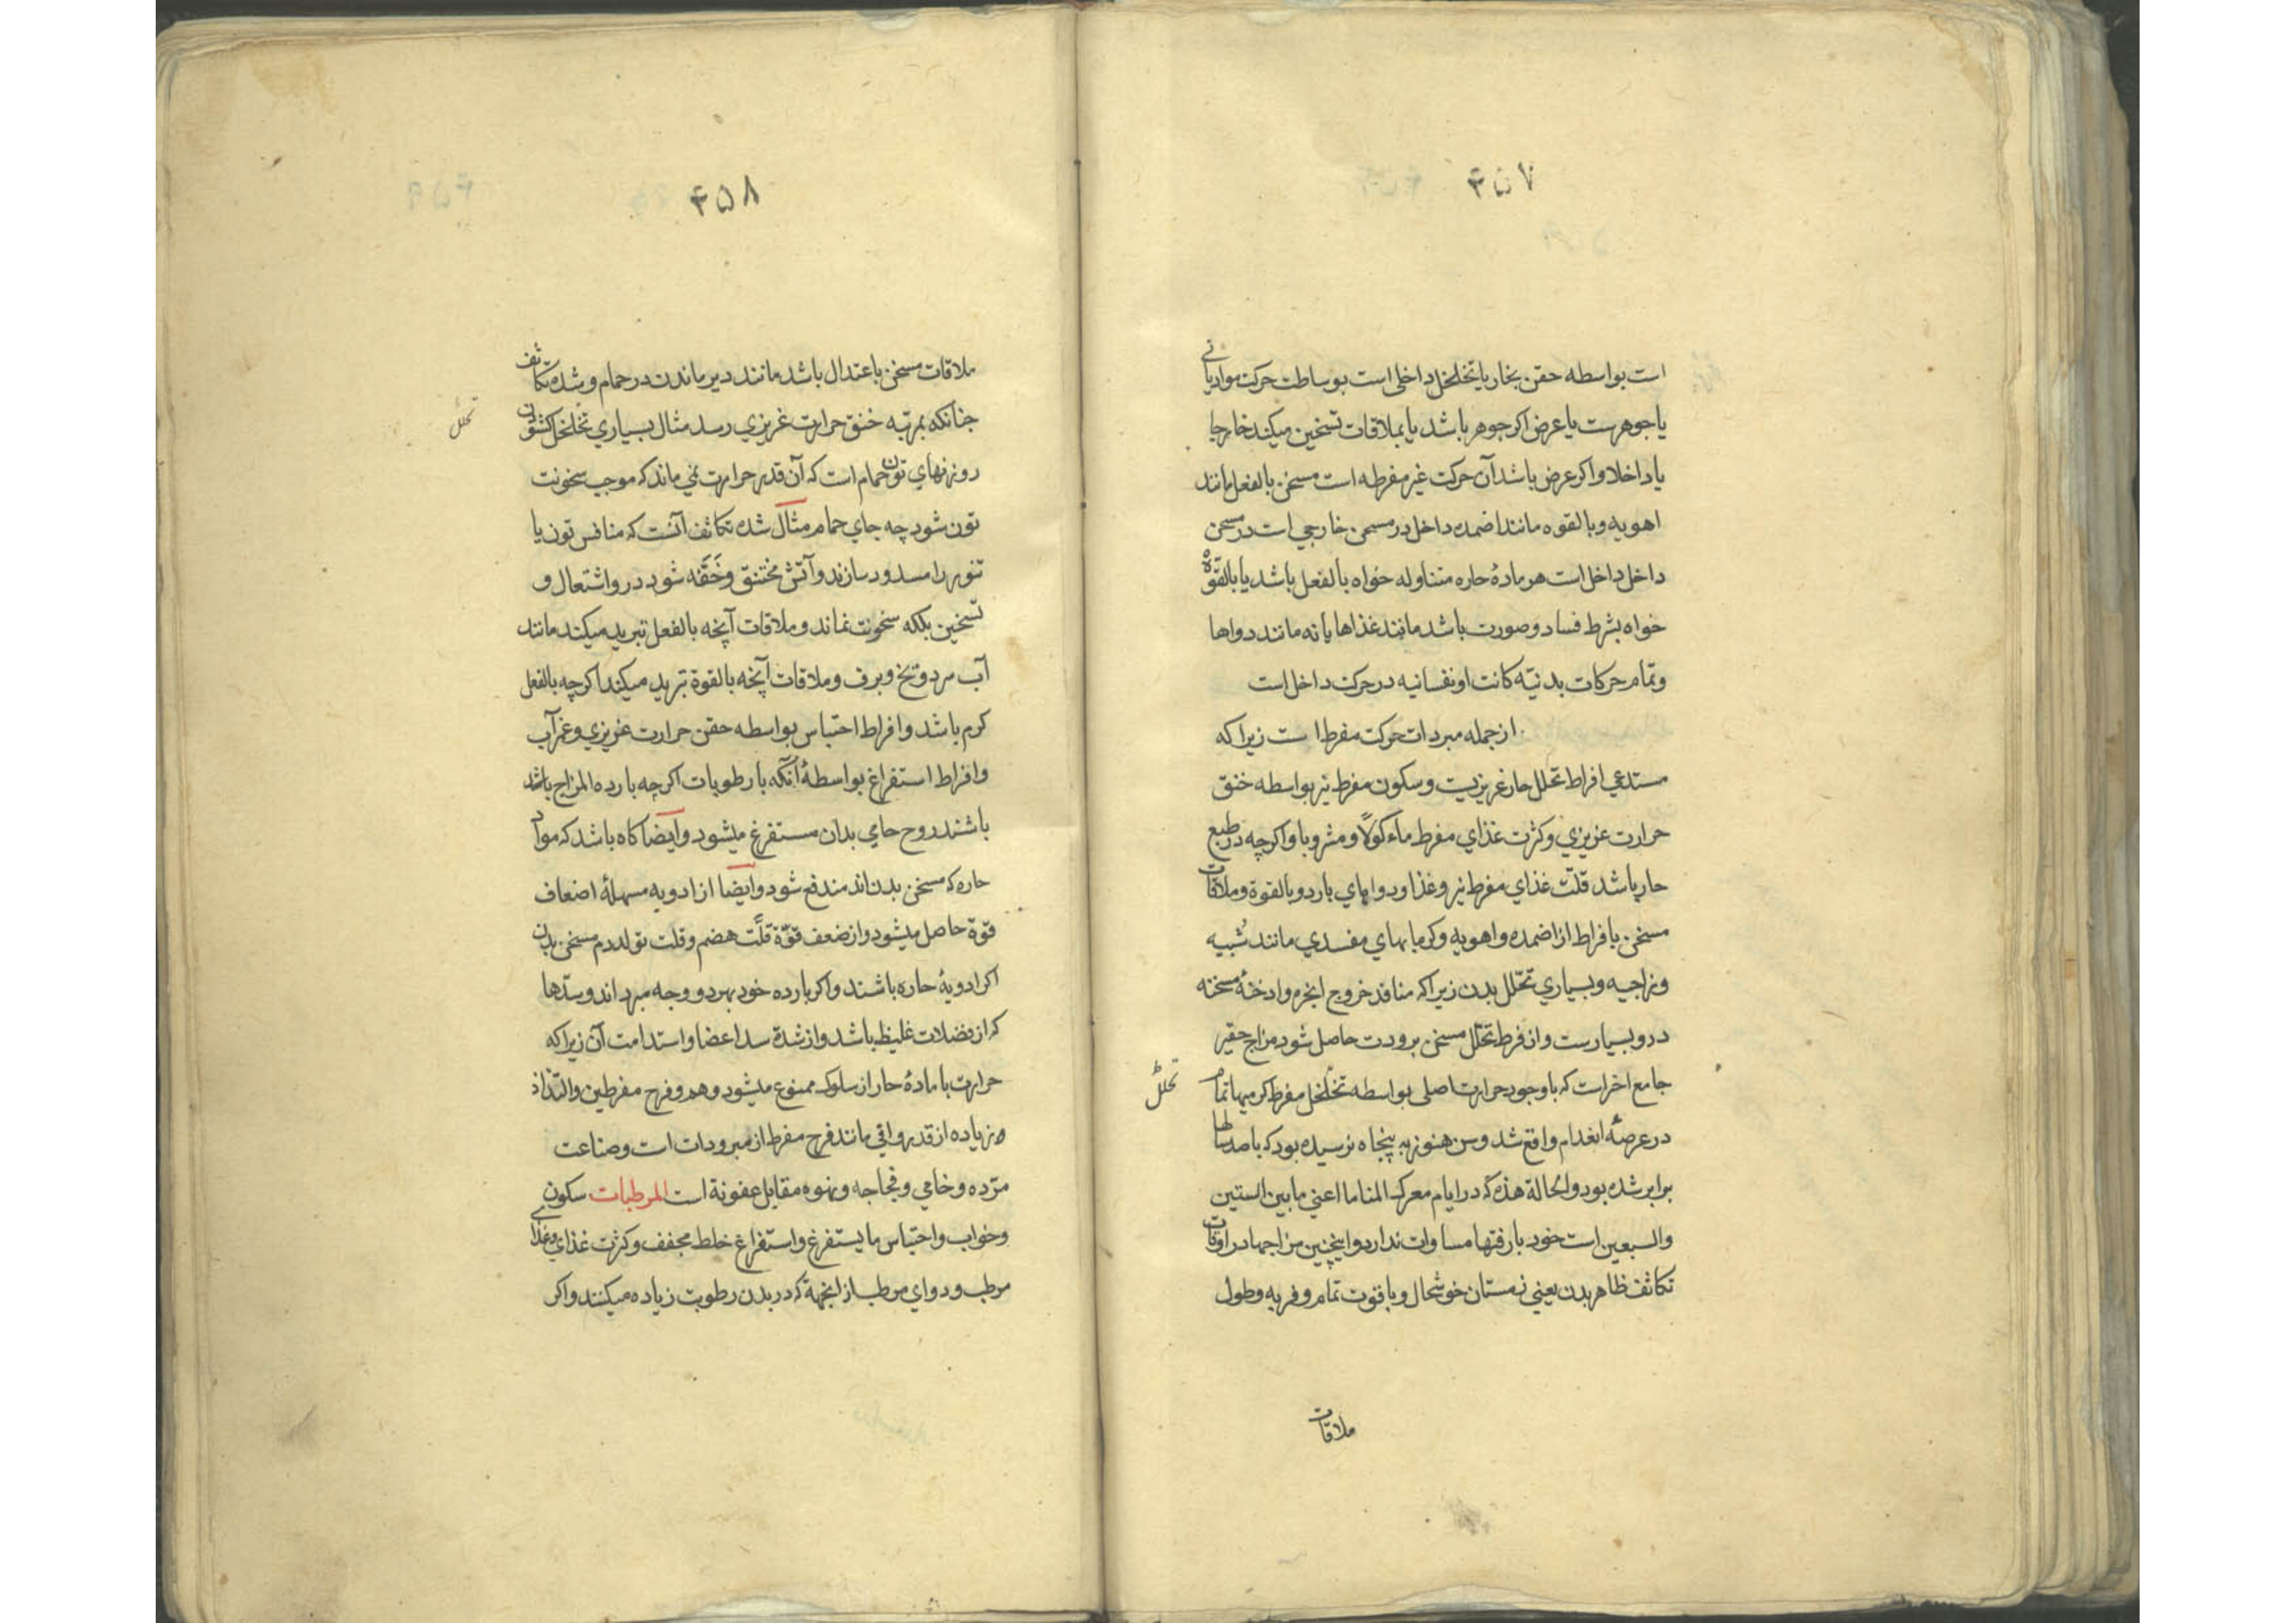 ۴۵۷
است بواسطه حقن بخار یا تخلخل داخلی است بوساطت حرکت مواد یا نی
یا جوهرست یا عرض اکر جوهر باشد یا بملاقات تسخین میکند خارجا
یا داخلا واکر عرض باشد آن حرکت غیر مفرطه است مسخن بالفعل مانند
اهویه وبالقوه مانند اضمده داخل در مسخن خارجی است در مسخن
داخل داخل است هر مادهٔ حاره متناوله خواه بالفعل باشد یا بالقوّة
خواه بشرط فساد وصورت باشد مانند غذاها یا نه مانند دواها
وتمام حرکات بدنیّه کانت او نفسانیه در حرکت داخل است
از جمله مبردات حرکت مفرط است زیرا که
مستدعی افراط تحلل حار غریزیست وسکون مفرط نیز بواسطه خنق
حرارت غریزی وکثرت غذای مفرط ماءکولاً ومشروبا واکرچه در طبع
حار باشد قلّت غذای مفرط نیز وغذا ودواهای بارد وبالقوة وملاقات
مسخن بافراط از اضمده واهویه وکرمابهای مفسدی مانند شبیه
وزاجیه وبسیاری تحّلل بدن زیرا که منافذ خروج ابخره وادخنهٔ مسخنه
درو بسیارست واز فرط تحلّل مسخن برودت حاصل شود مزاج حقیر
جامع اخر است که باوجود حرارت اصلی بواسطه تخلخل مفرط اکر میها تمام
تحلل
در عرصهٔ انعدام واقع شد وسن هنوز به پنجاه نرسیده بود که با صد سالها
برابر شده بود والحالة هذه که در ایام معرکة المنایا اعنی ما بین الستین
والسبعین است خود بارفتها مساوات ندارد واینچنین مزاجها در اوقات
تکاثف ظاهر بدن یعنی زمستان خوشحال وباقوت تمام وفربه وطول
ملاقات
۴۵۸
ملاقات مسخن باعتدال باشد مانند دیر ماندن در حمام وشده تکاثف
چنانکه بمرتبه خنق حرارت غریزی رسد مثال بسیاری تخلخل کشودن
تحلل
روزنهای تون حمام است که آن قدر حرارت نمی ماند که موجب سخونت
تون شود چه جای حمام مثال شده تکاثف آنست که منافس تون یا
تنور را مسدود سازند وآتش مختنق وخَفَه شود در واشتعال و
تسخین بلکه سخونت نماند وملاقات آنچه بالفعل تبرید میکند مانند
آب سرد ویخ وبرف وملاقات آنچه بالقوة تبرید میکند اکرچه بالفعل
کرم باشد وافراط احتباس بواسطه حقن حرارت غریزی وغمر آب
وافراط استفراغ بواسطهٔ آنکه با رطوبات اکرچه بارده المزاج باشد
باشند روح حامی بدان مستفرغ میشود وایضا کاه باشد که مواد
حاره که مسخن بدن‌اند مندفع شود وایضا از ادویه مسهلهٔ اضعاف
قوة حاصل میشود واز ضعف قوّة قلّت هضم وقلت تولد دم مسخن بدن
اکر ادویهٔ حاره باشند واکر بارده خود بهر دو وجه مبرداند وسدّها
که از فضلات غلیظ باشد واز شدة سد اعضا واستدامت آن زیرا که
حرارت با مادهٔ حار از سلوک ممنوع میشود وهم وفرح مفرطین والتذاذ
وزیاده از قدر واقی مانند فرح مفرط از مبرودات است وصناعت
مبّرده وخامی وفجاجه ونهوه مقابل عفونة است المرطبات سکون
وخواب واحتباس ما یستفرغ واستفراغ خلط مجفف وکثرت غذای وغذای
مرطب ودوای مرطب از انجهة که در بدن رطوبت زیاده میکنند واکر